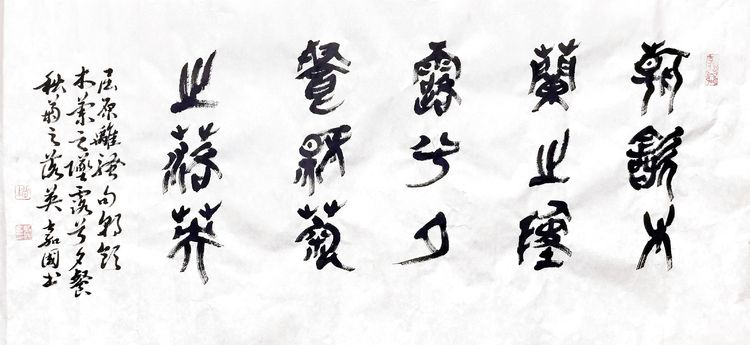 朝飲木
蘭之墜
露兮夕
餐秋菊
之落英
屈原離騷句朝飲
木蘭之墜露兮夕餐
秋菊之落英 嘉國书